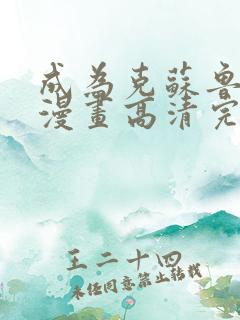 成為克蘇魯
漫畫高清完
王二十四
未经同意禁止转载